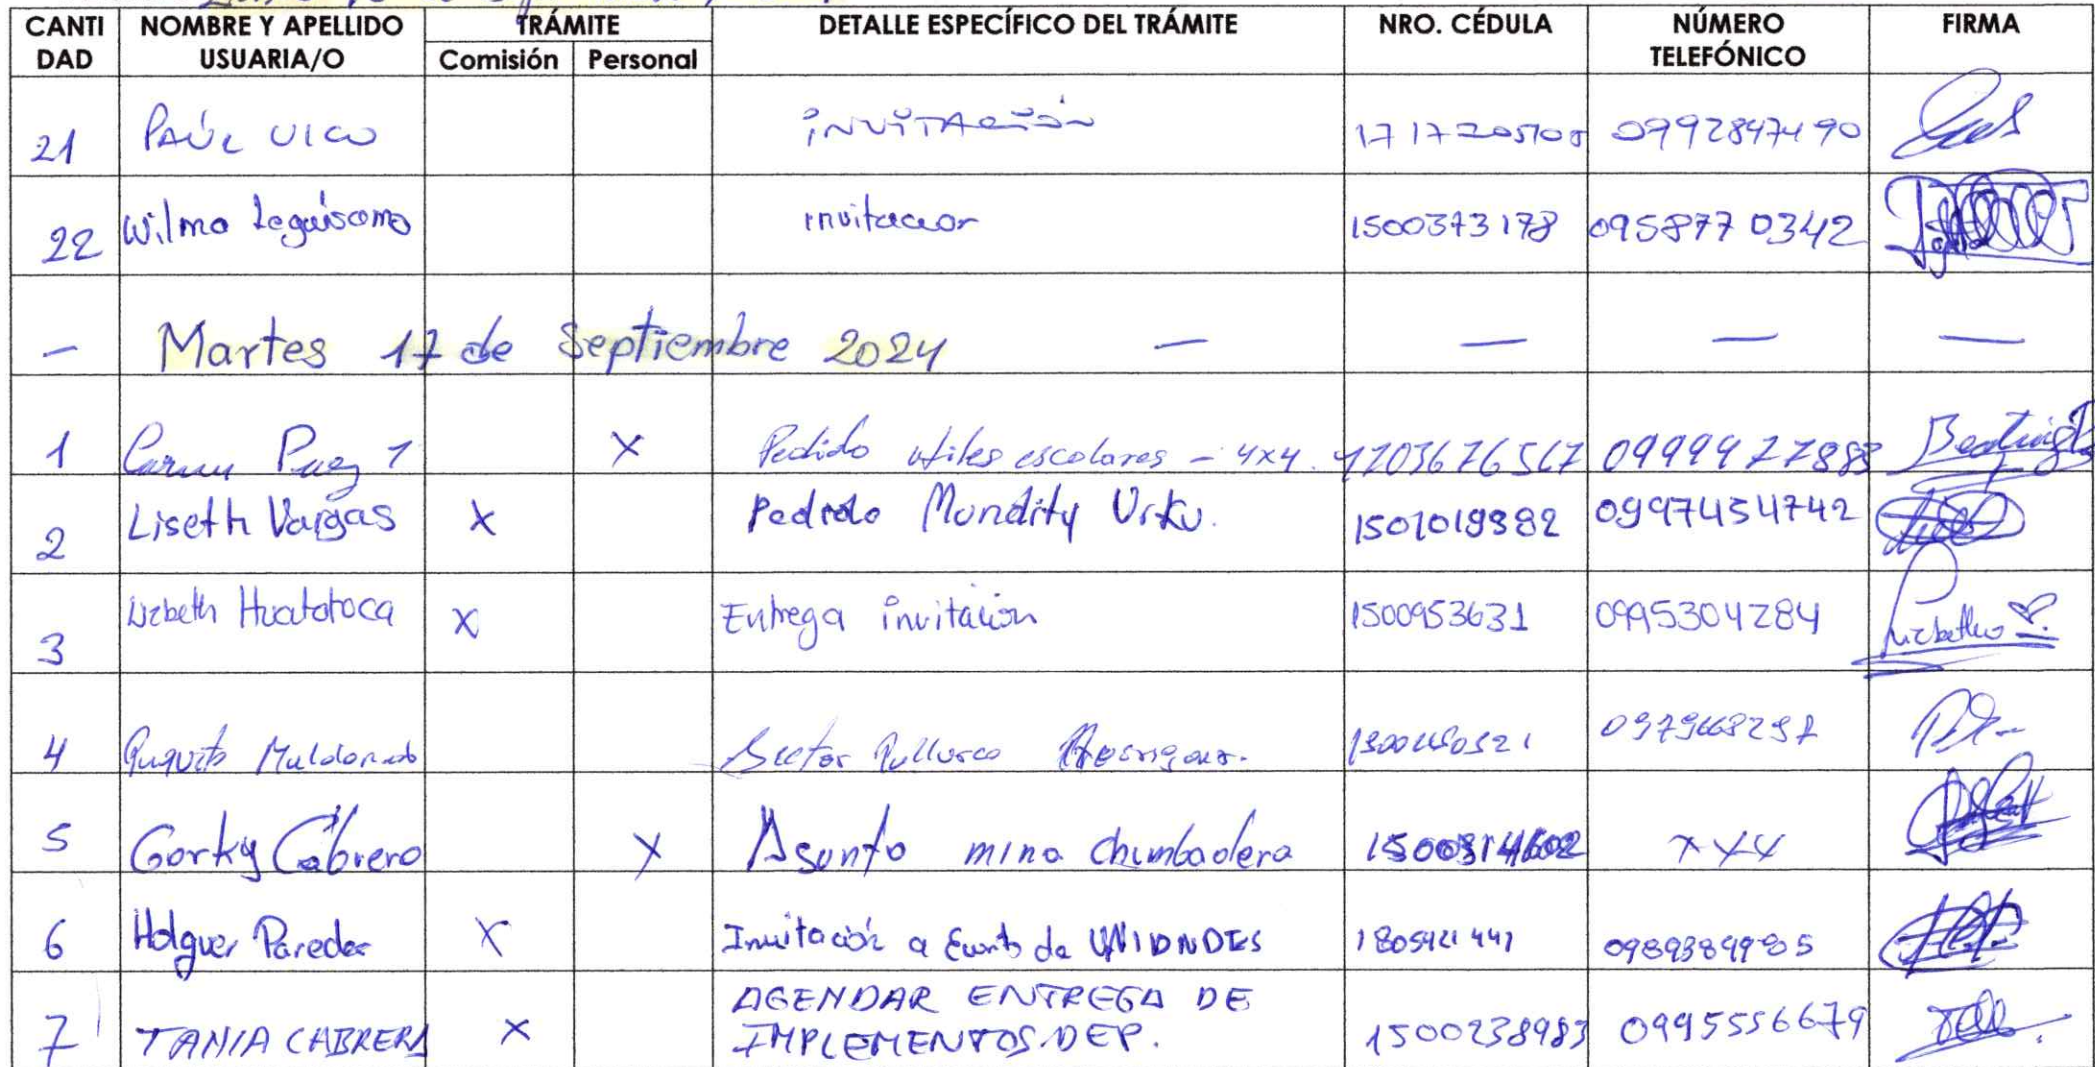 CANTIDAD NOMBRE Y APELLIDO USUARIA/O TRÁMITE Comisión Personal DETALLE ESPECÍFICO DEL TRÁMITE NRO. CÉDULA NÚMERO TELEFÓNICO FIRMA
21 PAÚL VICO INVITACIÓN 0992847490
22 Wilma Leguiscamo invitacion 1500373178 0958770342
— Martes 17 de Septiembre 2024 — — — —
1 Carmen Paez X Pedido utiles escolares - 4x4. 1203676567
2 Liseth Vargas X Pedido Mundity Urku. 1501019382 0997454742
3 Lizbeth Huatatoca X Entrega invitación 1500953631 0995304284
4 Augusto Maldonado Sector
5 Gorky Cabrera X Asunto mina chumbadera xxx
6 Holguer Paredes X Invitación a Evento de 0989389985
7 TANIA CABRERA X AGENDAR ENTREGA DE
IMPLEMENTOS DEP. 1500238983 0995556679